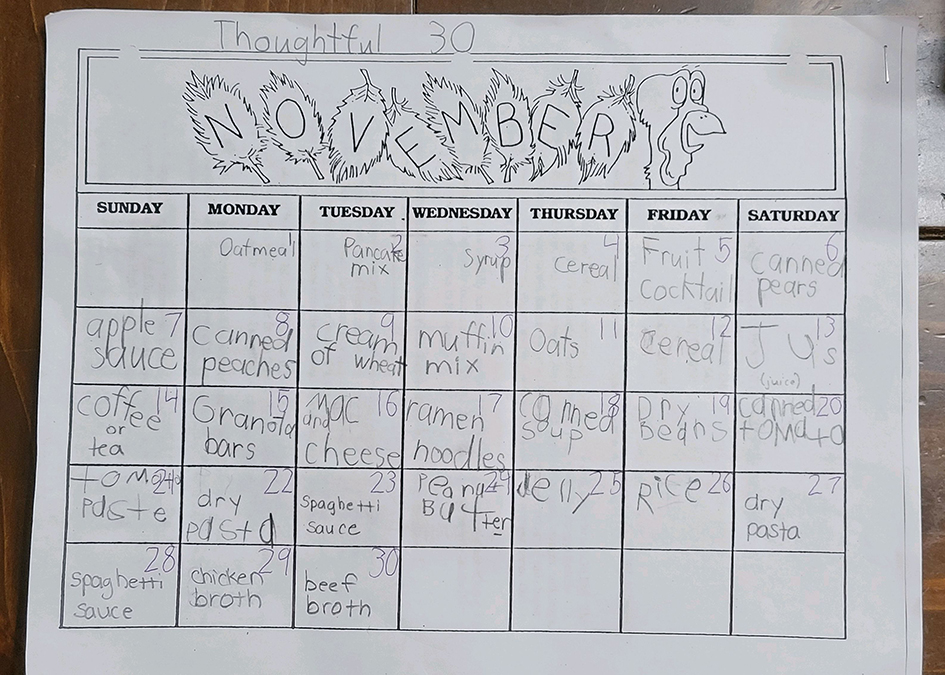 Thoughtful 30
NOVEMBER
SUNDAY MONDAY TUESDAY WEDNESDAY THURSDAY FRIDAY SATURDAY
1 Oatmeal
2 Pancake
mix
3
syrup
4
cereal
Fruit 5
cocktail
6
canned
pears
apple 7
sauce
8
canned
peaches
9
cream
of wheat
10
muffin
mix
11
Oats
12
Cereal
13
Jus
(juice)
coffee 14
or
tea
15
Granola
bars
Mac 16
and
cheese
17
ramen
noodles
canned 18
soup
Dry 19
Beans
canned 20
tomato
tomato 21
paste
22
dry
pasta
23
spaghetti
sauce
Peanut 24
Butter
Jelly 25
Rice 26
27
dry
pasta
28
spaghetti
sauce
29
chicken
broth
30
beef
broth